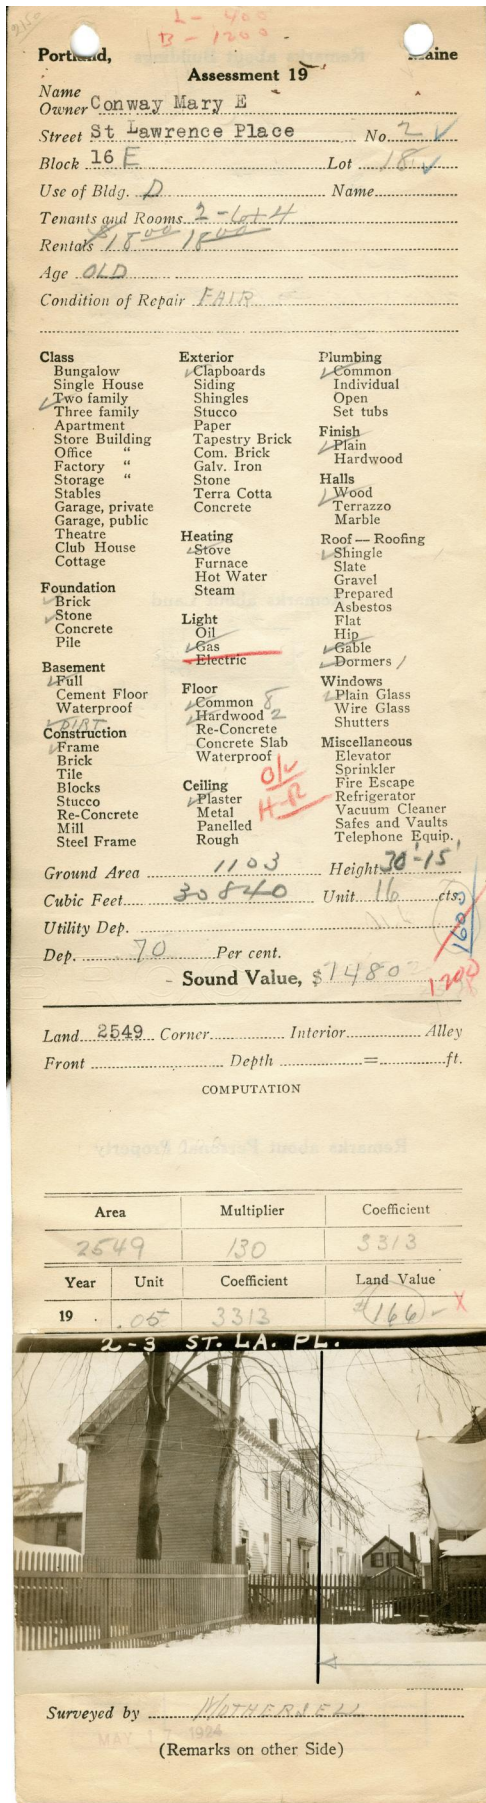 L - 400
B - 1200
Portland, Maine
Assessment 19
Name
Owner Conway Mary E
Street St Lawrence Place No. 2
Block 16 E Lot 18
Use of Bldg. D Name
Tenants and Rooms 2-6+4
Rentals $18 00 18 00
Age OLD
Condition of Repair FAIR
Class
Bungalow
Single House
Two family
Three family
Apartment
Store Building
Office "
Factory "
Storage "
Stables
Garage, private
Garage, public
Theatre
Club House
Cottage
Foundation
Brick
Stone
Concrete
Pile
Basement
Full
Cement Floor
Waterproof
DIRT
Construction
Frame
Brick
Tile
Blocks
Stucco
Re-Concrete
Mill
Steel Frame
Exterior
Clapboards
Siding
Shingles
Stucco
Paper
Tapestry Brick
Com. Brick
Galv. Iron
Stone
Terra Cotta
Concrete
Heating
Stove
Furnace
Hot Water
Steam
Light
Oil
Gas
Electric
Floor
Common 8
Hardwood 2
Re-Concrete
Concrete Slab
Waterproof
Ceiling
Plaster
Metal
Panelled
Rough
H-R
Plumbing
Common
Individual
Open
Set tubs
Finish
Plain
Hardwood
Halls
Wood
Terrazzo
Marble
Roof — Roofing
Shingle
Slate
Gravel
Prepared
Asbestos
Flat
Hip
Gable
Dormers /
Windows
Plain Glass
Wire Glass
Shutters
Miscellaneous
Elevator
Sprinkler
Fire Escape
Refrigerator
Vacuum Cleaner
Safes and Vaults
Telephone Equip.
Ground Area 1103 Height 30'-15'
Cubic Feet 30840 Unit 16 cts.
1600
Utility Dep.
Dep. 70 Per cent.
Sound Value, $1480 1200
Land 2549 Corner Interior Alley
Front Depth = ft.
COMPUTATION
Area Multiplier Coefficient
2549 130 3313
Year Unit Coefficient Land Value
19 .05 3313 $166- X
2-3 ST. LA. PL.
Surveyed by MOTHERSELL
MAY 17 1924
(Remarks on other Side)